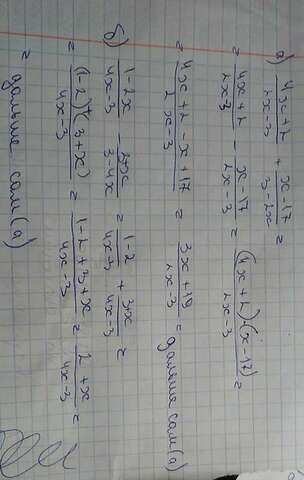 а) (4x+2)/(2x-3) + (x-17)/(3-2x) =
= (4x+2)/(2x-3) - (x-17)/(2x-3) = ((4x+2)-(x-17))/(2x-3) =
= (4x+2-x+17)/(2x-3) = (3x+19)/(2x-3) = дальше сам(а)
б) (1-2x)/(4x-3) - (3+x)/(3-4x) = (1-2)/(4x-3) + (3+x)/(4x-3) =
= ((1-2)+(3+x))/(4x-3) = (1-2+3+x)/(4x-3) = (2+x)/(4x-3) =
= дальше сам(а)